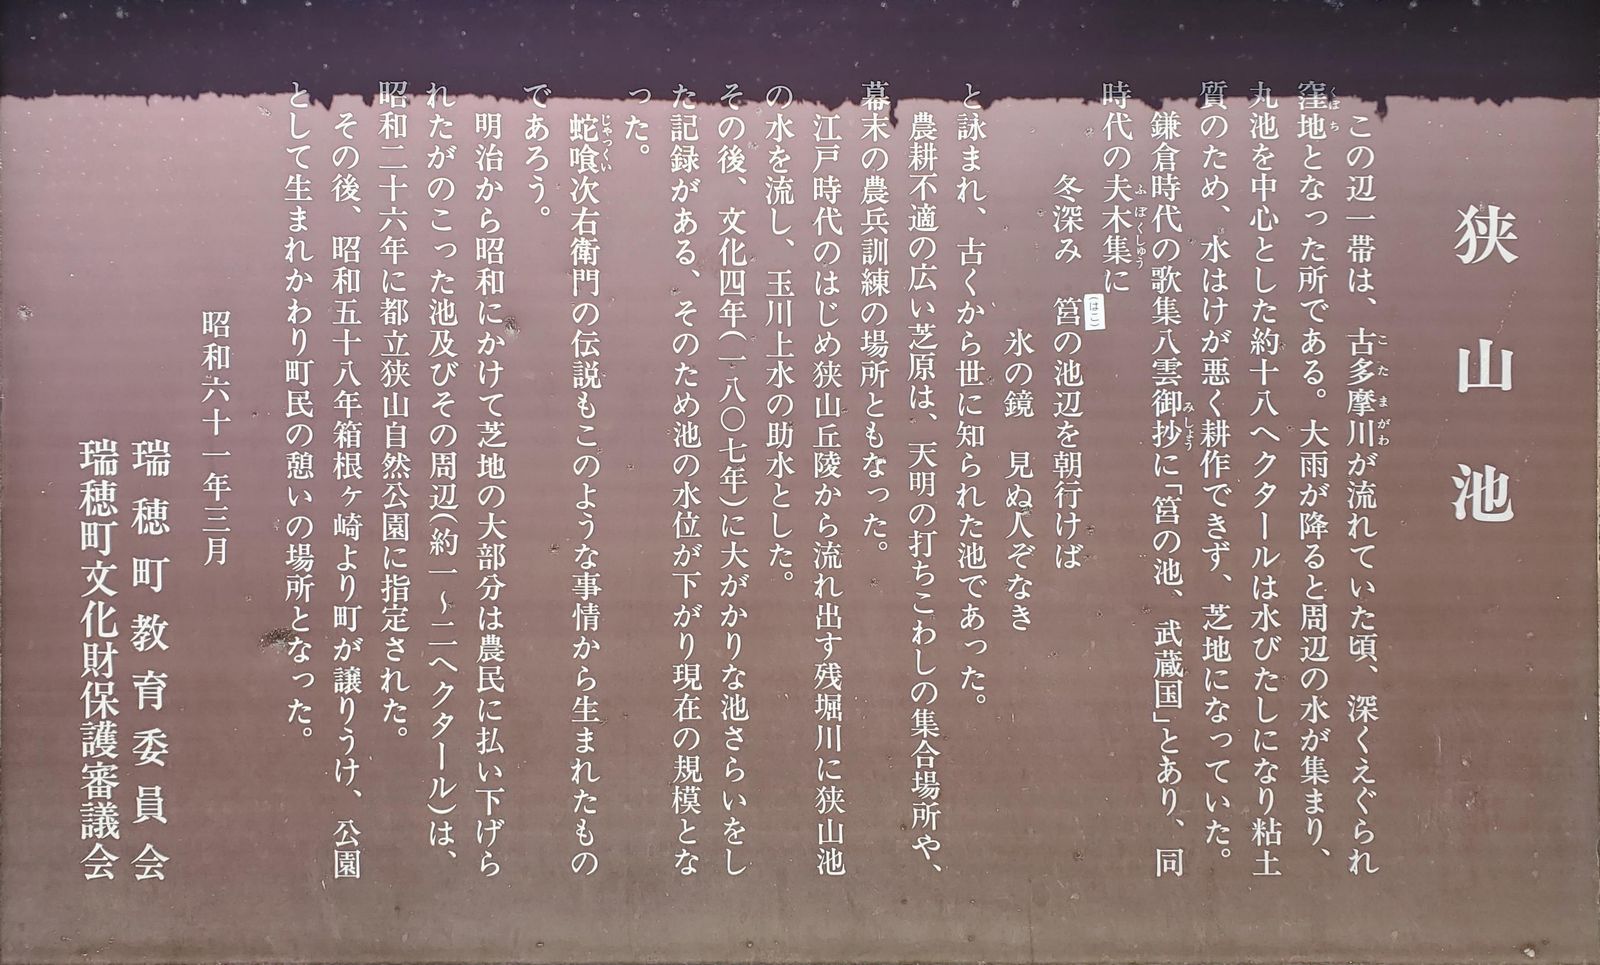 狭山池
この辺一帯は、古多摩川が流れていた頃、深くえぐられ
窪地となった所である。大雨が降ると周辺の水が集まり、
丸池を中心とした約十八ヘクタールは水びたしになり粘土
質のため、水はけが悪く耕作できず、芝地になっていた。
鎌倉時代の歌集八雲御抄に「筥の池、武蔵国」とあり、同
時代の夫木集に
冬深み 筥の池辺を朝行けば
氷の鏡 見ぬ人ぞなき
と詠まれ、古くから世に知られた池であった。
農耕不適の広い芝原は、天明の打ちこわしの集合場所や、
幕末の農兵訓練の場所ともなった。
江戸時代のはじめ狭山丘陵から流れ出す残堀川に狭山池
の水を流し、玉川上水の助水とした。
その後、文化四年(一八〇七年)に大がかりな池さらいをし
た記録がある、そのため池の水位が下がり現在の規模とな
った。
蛇喰次右衛門の伝説もこのような事情から生まれたもの
であろう。
明治から昭和にかけて芝地の大部分は農民に払い下げら
れたがのこった池及びその周辺(約一～二ヘクタール)は、
昭和二十六年に都立狭山自然公園に指定された。
その後、昭和五十八年箱根ヶ崎より町が譲りうけ、公園
として生まれかわり町民の憩いの場所となった。
昭和六十一年三月
瑞穂町教育委員会
瑞穂町文化財保護審議会
こたまがわ
くぼち
みしょう
ふぼくしゅう
(はこ)
じゃっくい